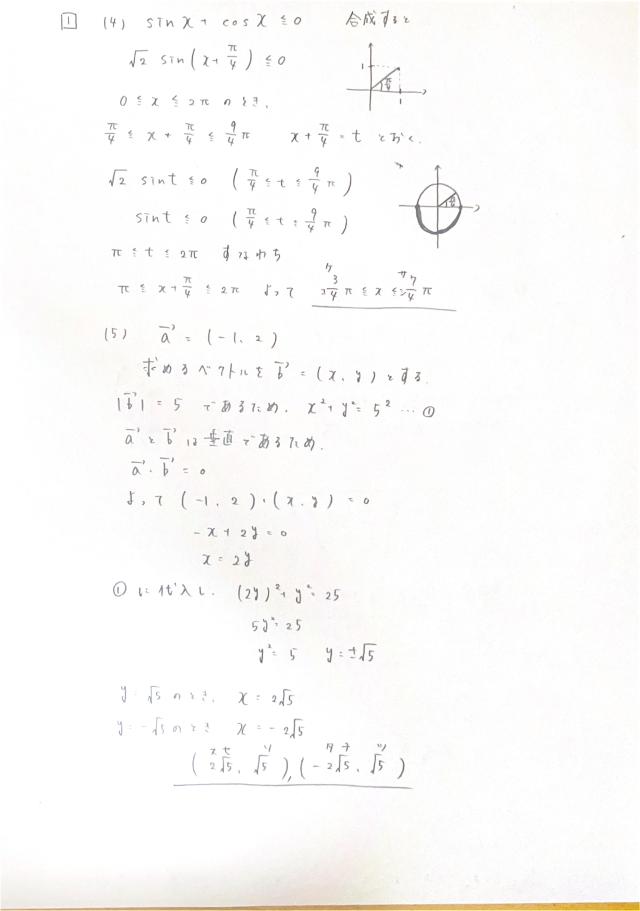 1 (4) sin x + cos x ≦ 0 合成すると
√2 sin(x + π/4) ≦ 0
0 ≦ x ≦ 2π のとき、
π/4 ≦ x + π/4 ≦ 9/4 π x + π/4 = t とおく.
√2 sin t ≦ 0 (π/4 ≦ t ≦ 9/4 π)
sin t ≦ 0 (π/4 ≦ t ≦ 9/4 π)
π ≦ t ≦ 2π すなわち
π ≦ x + π/4 ≦ 2π よって 3/4 π ≦ x ≦ 7/4 π
(5) a→ = (-1, 2)
求めるベクトルを b→ = (x, y) とする.
|b→| = 5 であるため. x² + y² = 5² … ①
a→ と b→ は垂直であるため.
a→・b→ = 0
よって (-1, 2)・(x, y) = 0
-x + 2y = 0
x = 2y
① に代入し. (2y)² + y² = 25
5y² = 25
y² = 5 y = ±√5
y = √5 のとき、 x = 2√5
y = -√5 のとき x = -2√5
(2√5, √5), (-2√5, √5)